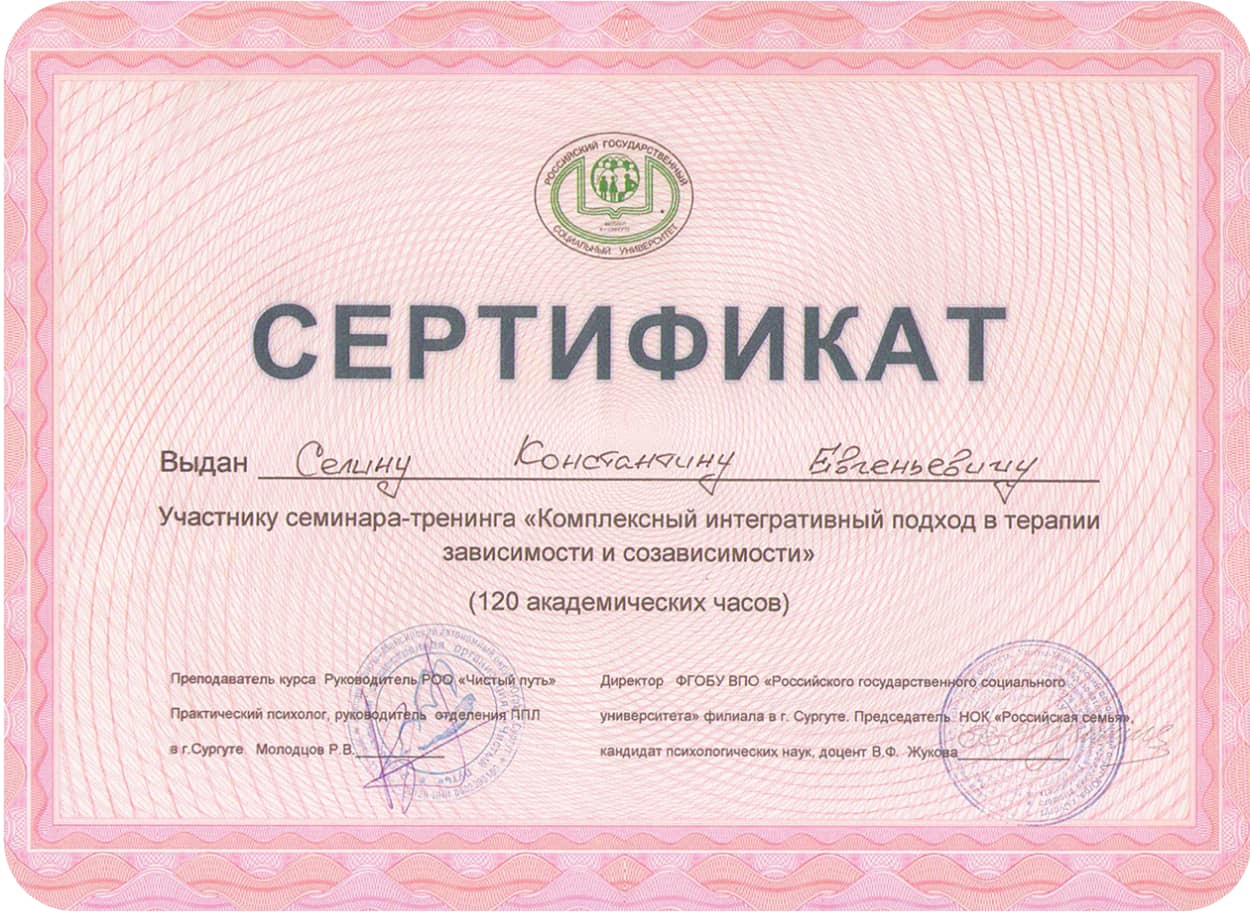 РОССИЙСКИЙ ГОСУДАРСТВЕННЫЙ
СОЦИАЛЬНЫЙ УНИВЕРСИТЕТ
СЕРТИФИКАТ
Выдан Селину Константину Евгеньевичу
Участнику семинара-тренинга «Комплексный интегративный подход в терапии
зависимости и созависимости»
(120 академических часов)
Преподаватель курса Руководитель РОО «Чистый путь»
Практический психолог, руководитель отделения ППЛ
в г.Сургуте Молодцов Р.В.
Директор ФГОБУ ВПО «Российского государственного социального
университета» филиала в г. Сургуте. Председатель НОК «Российская семья»,
кандидат психологических наук, доцент В.Ф. Жукова